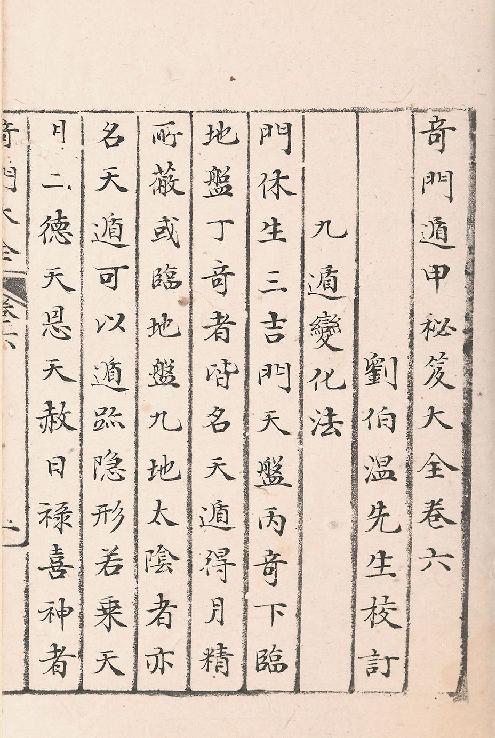 奇門遁甲秘笈大全卷六
劉伯温先生校訂
九遁變化法
門休生三吉門天盤丙奇下臨
地盤丁奇者皆名天遁得月精
所蔽或臨地盤九地太陰者亦
名天遁可以遁跡隐形若乘天
月二德天恩天赦日禄喜神者
奇門大全 卷六 一